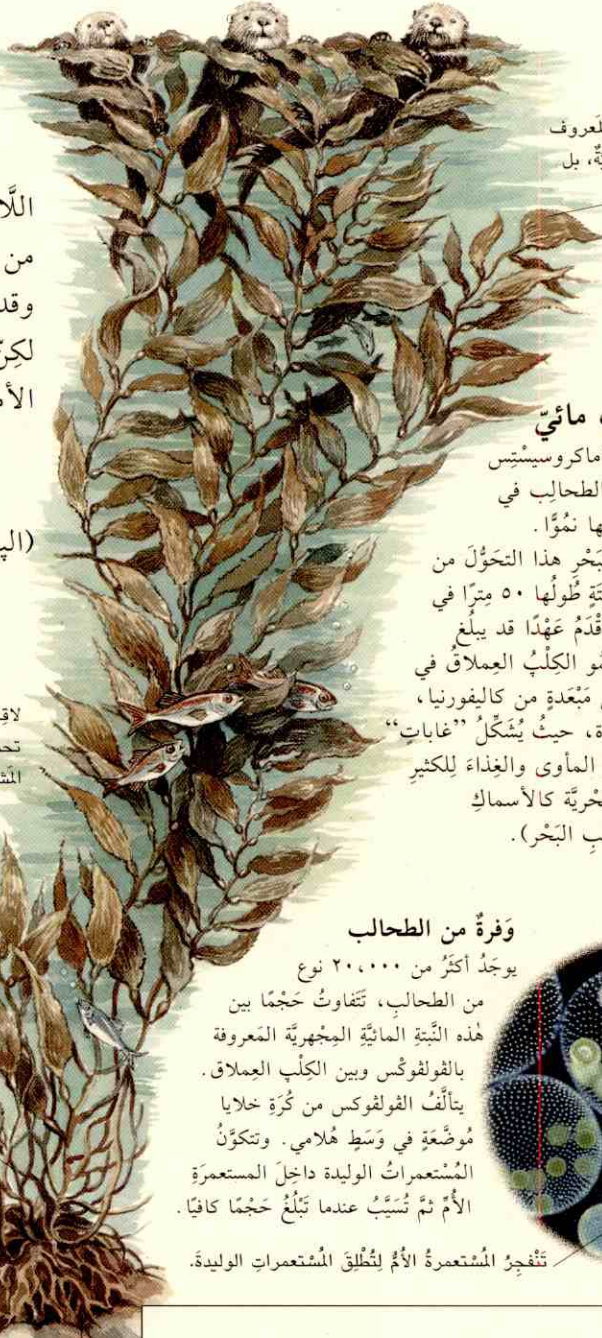 لَمعروف
بل
من
وقد
مائيّ
ماكروسيسْتِس
الطحالِب في
ها نمُوًّا.
بَحْرِ هذا التحَوُّلَ من
طُولُها ٥٠ مِترًا في
قْدَمُ عَهْدًا قد يبلُغ
مُو الكِلْبُ العِملاقُ في
مَبْعَدةٍ من كاليفورنيا،
ة، حيثُ يُشَكِّلُ ”غاباتٍ“
المأوى والغِذاءَ لِلكثيرِ
حْريَّة كالأسماكِ
بِ البَحْر).
وَفرةٌ من الطحالب
يوجَدُ أكثَرُ من ٢٠،٠٠٠ نوع
من الطحالبِ، تَتَفاوتُ حَجْمًا بين
هٰذه النَّبتةِ المائيَّةِ المِجْهريَّة المَعروفة
بالڤولڤوكْس وبين الكِلْبِ العِملاق.
يتألَّفُ الڤولڤوكس من كُرَةِ خلايا
مُوضَّعَةٍ في وَسَطٍ هُلامي. وتتكوَّنُ
المُسْتعمراتُ الوليدة داخِلَ المستعمرَةِ
الأُمِّ ثمَّ تُسَيَّبُ عندما تَبْلُغُ حَجْمًا كافيًا.
تَنْفجِرُ المُسْتعمرةُ الأمُّ لِتُطْلِقَ المُسْتعمراتِ الوليدةَ.